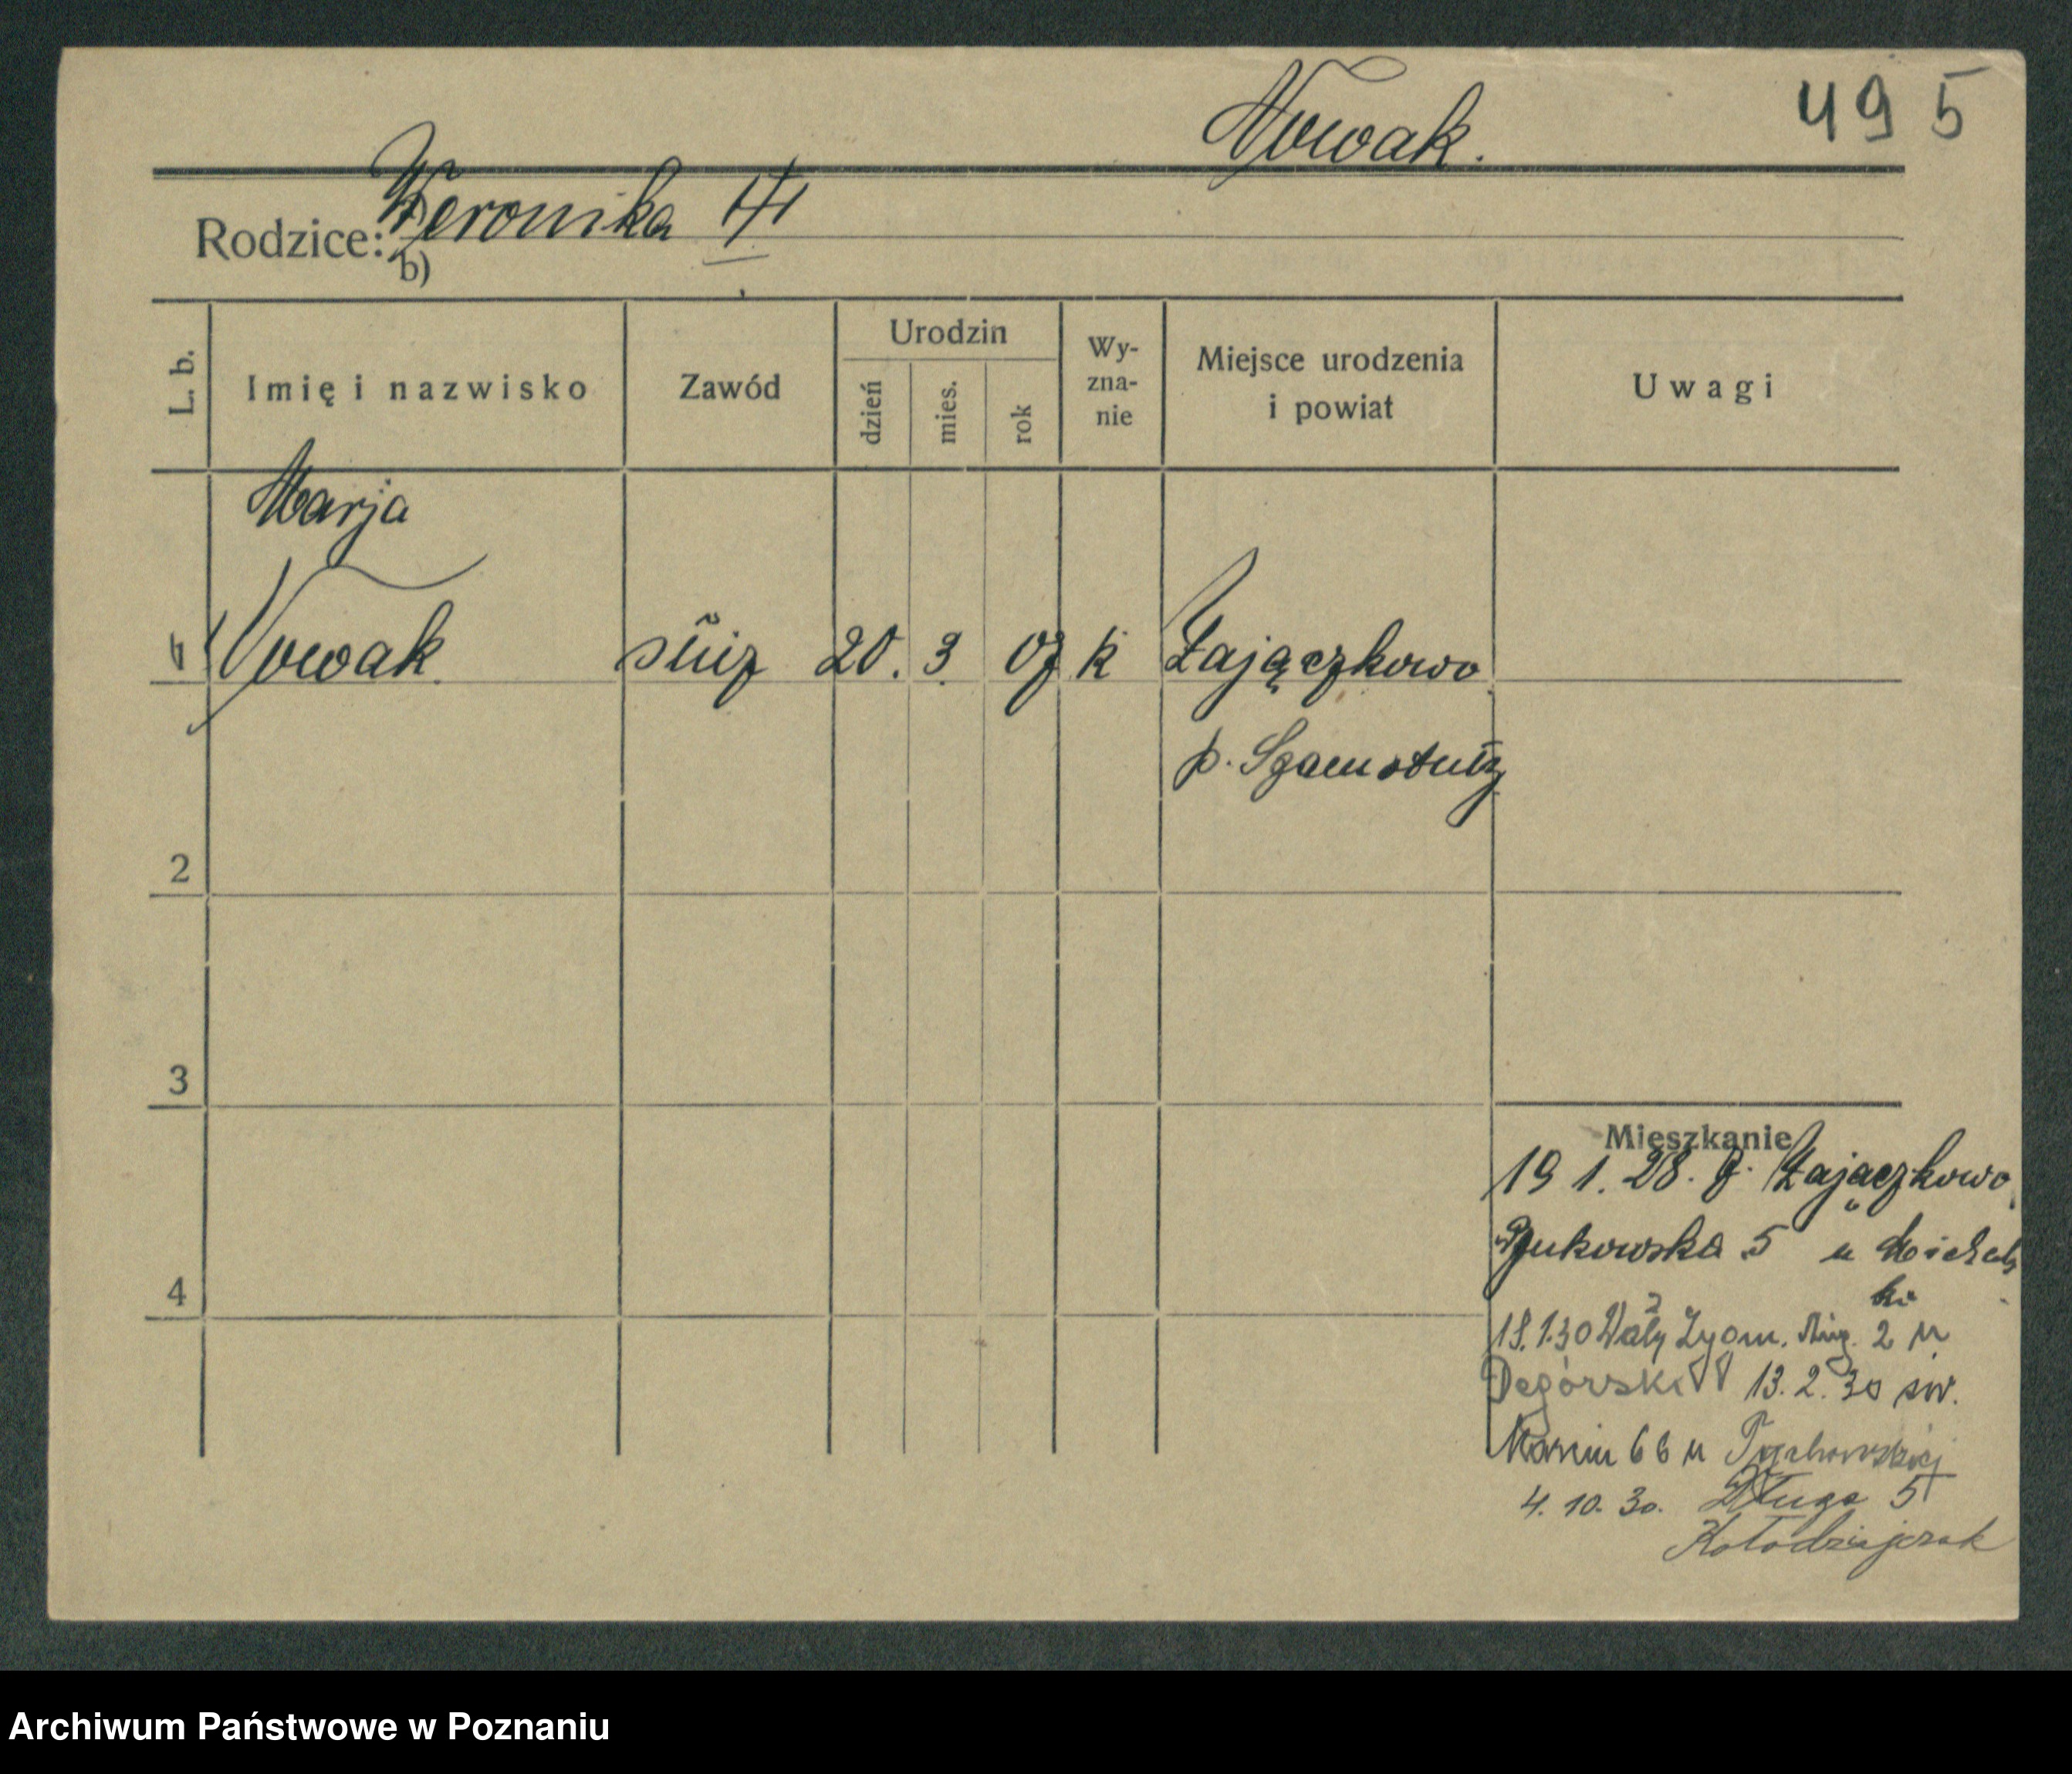 495
Nowak.
Rodzice:
Weronika
b)
L. b.
Imię i nazwisko
Zawód
Urodzin
dzień
mies.
rok
Wy-
zna-
nie
Miejsce urodzenia
i powiat
Uwagi
Marja
1 Nowak służ 20. 3. 07 k Zajączkowo
p. Szamotuły
2
3
4
Mieszkanie
19 1. 28. z Zajączkowo
Bukowska 5 u
18.1.30 Wały Zygm. Aug. 2 u
Degórski 13.2.30 św.
Marcin 66 u
4. 10. 30. Długa 5
Kołodziejczak
Archiwum Państwowe w Poznaniu